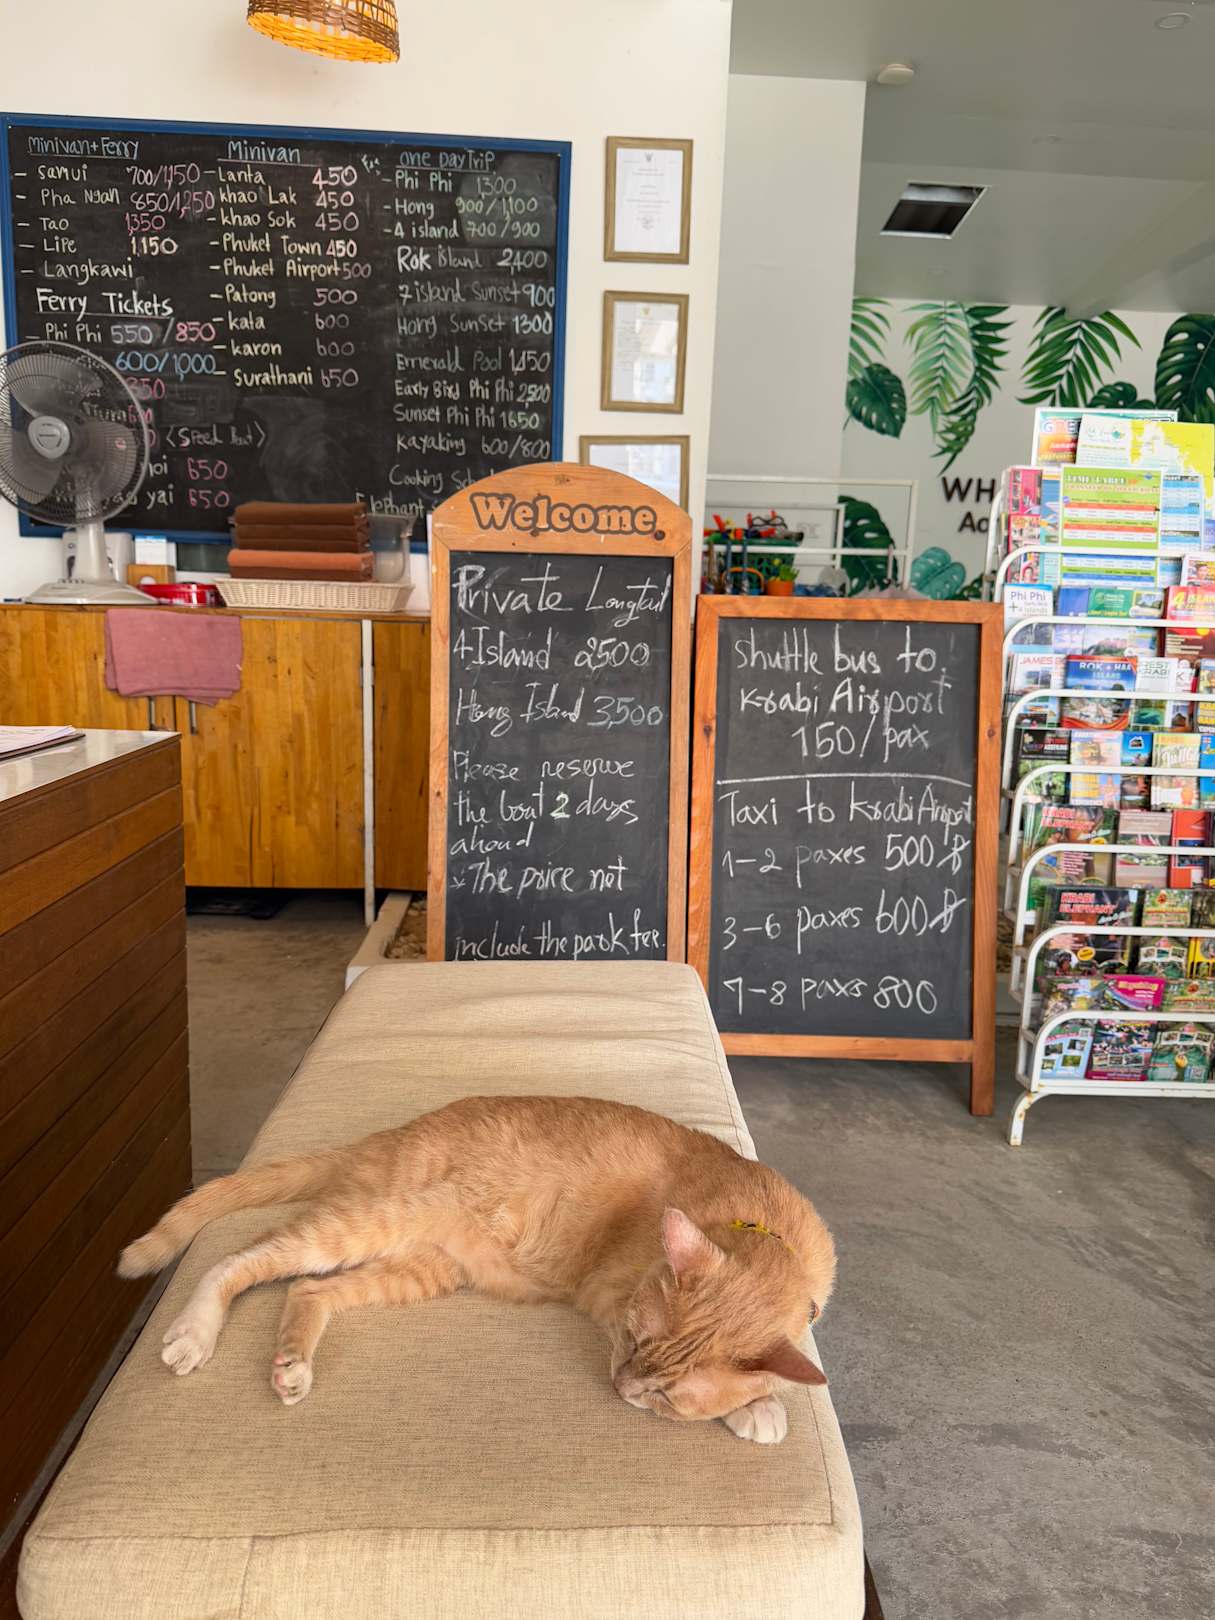 minivan+Ferry
- samui 700/1,150
- Pha Ngan 850/1,250
- Tao 1,350
- Lipe 1,150
- Langkawi
Ferry Tickets
- Phi Phi 550/850
600/1,000
350
<Speed Boat>
noi 650
yai 650
Minivan
- Lanta 450
khao Lak 450
- khao Sok 450
- Phuket Town 450
- Phuket Airport 500
- Patong 500
- kata 600
- karon 600
- Surathani 650
one Day Trip
- Phi Phi 1300
- Hong 900/1,100
- 4 island 700/900
Rok island 2,400
7 island Sunset 900
Hong Sunset 1300
Emerald Pool 1,150
Early Bird Phi Phi 2500
Sunset Phi Phi 1650
Kayaking 600/800
Cooking
Elephant
Welcome.
Private Longtail
4 Island 2500
Hong Island 3,500
Please reserve
the boat 2 days
ahead
*The price not
include the park fee.
shuttle bus to.
Krabi Airport
150/pax
Taxi to Krabi Airport
1-2 paxes 500฿
3-6 paxes 600฿
7-8 paxs 800
WH
Phi Phi
ROK + HAA
ISLAND
KRABI
ELEPHANT